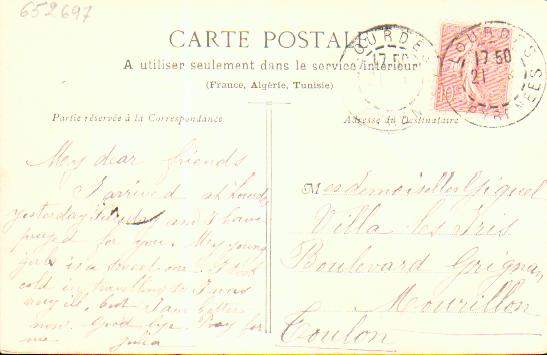 652697
CARTE POSTALE
A utiliser seulement dans le service intérieur
(France, Algérie, Tunisie)
Partie réservée à la Correspondance
Adresse du Destinataire
LOURDES
17 50
LOURDES
17 50
21
10
My dear friends
I arrived at Lourdes
yesterday and I have
prayed for you. My young
is a sweet one. I took
cold in travelling so I was
very ill, but I am better
now. Good bye. Pray for
me Julia
Mesdemoiselles Giquel
Villa les Iris
Boulevard Grignan
Mourillon
Toulon